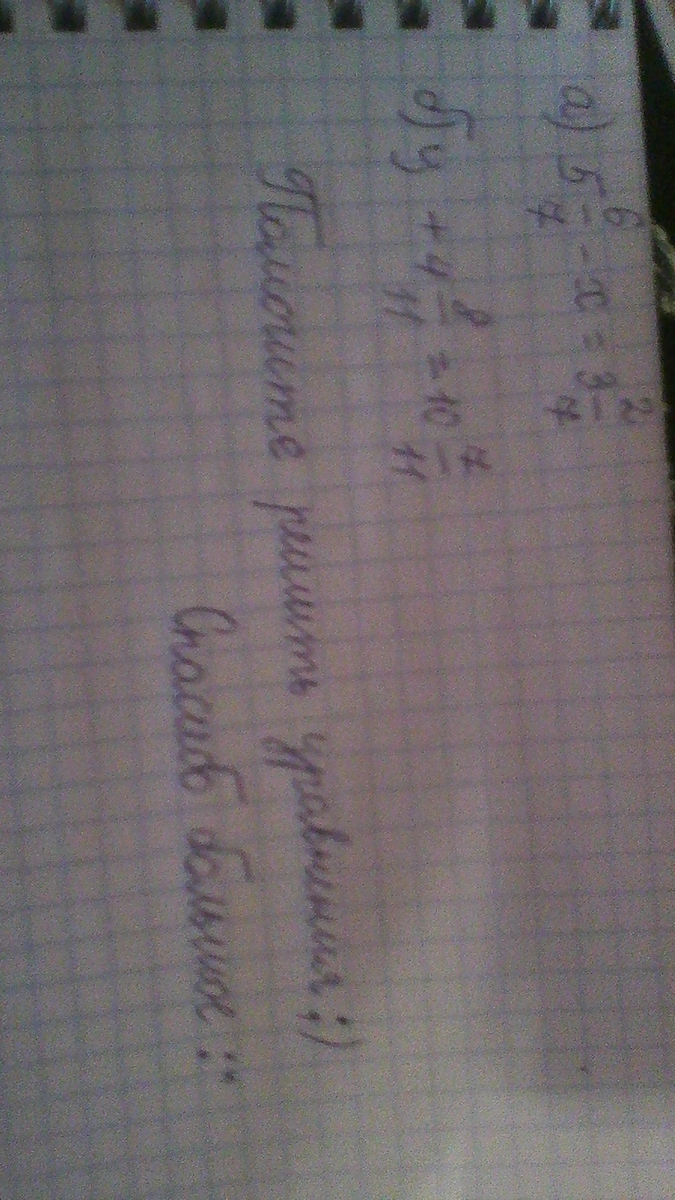 а) 5 6/7 - x = 3 2/7
б) y + 4 8/11 = 10 7/11
Помогите решить уравнения ;)
Спасибо большое :*